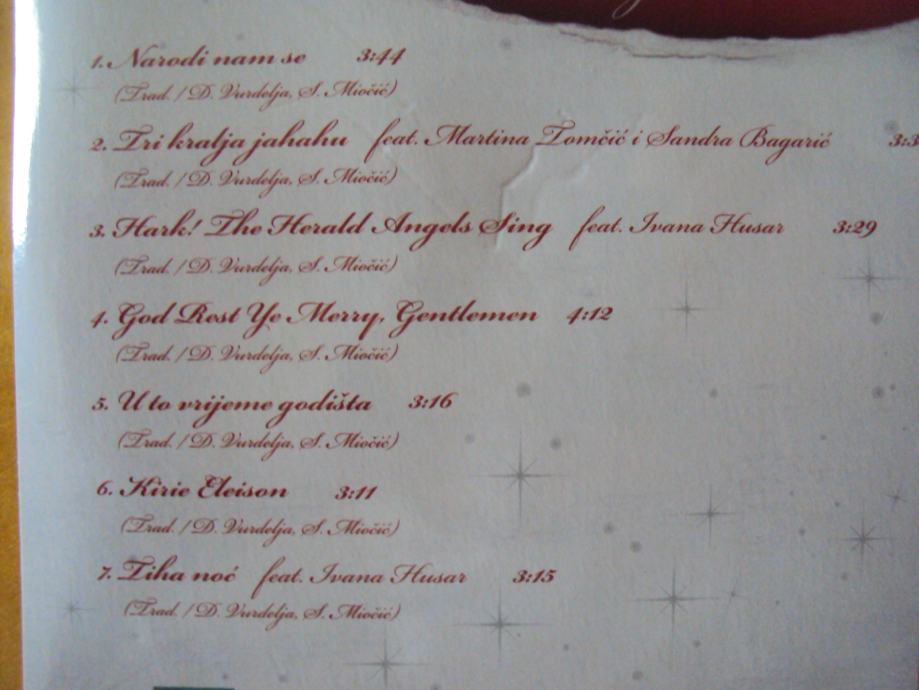 1. Narodi nam se 3:44
(Trad. / D. Vurdelja, S. Miočić)
2. Tri kralja jahahu feat. Martina Tomčić i Sandra Bagarić
(Trad. / D. Vurdelja, S. Miočić)
3. Hark! The Herald Angels Sing feat. Ivana Husar 3:29
(Trad. / D. Vurdelja, S. Miočić)
4. God Rest Ye Merry, Gentlemen 4:12
(Trad. / D. Vurdelja, S. Miočić)
5. U to vrijeme godišta 3:16
(Trad. / D. Vurdelja, S. Miočić)
6. Kirie Eleison 3:11
(Trad. / D. Vurdelja, S. Miočić)
7. Tiha noć feat. Ivana Husar 3:15
(Trad. / D. Vurdelja, S. Miočić)